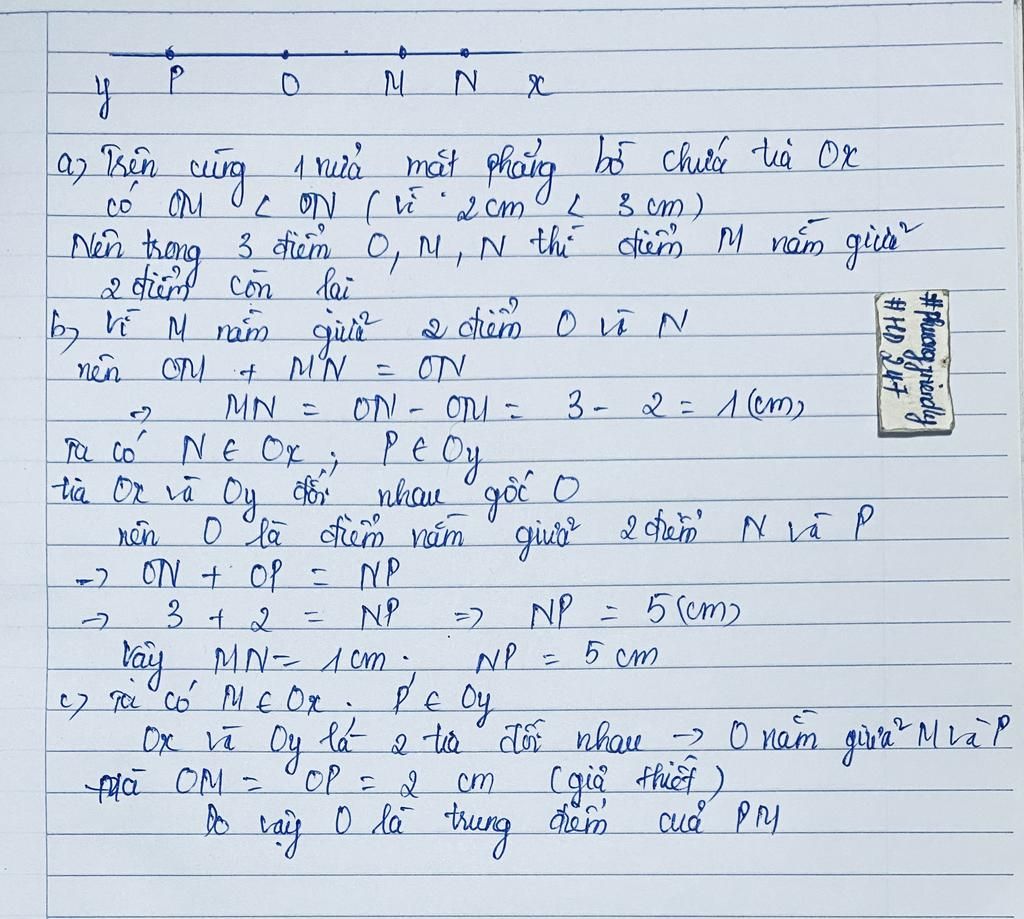 y P O M N x
a) Trên cùng 1 nửa mặt phẳng bờ chứa tia Ox
có OM < ON (vì 2cm < 3 cm)
Nên trong 3 điểm O, M, N thì điểm M nằm giữa
2 điểm còn lại
b) Vì M nằm giữa 2 điểm O và N
nên OM + MN = ON
=> MN = ON - OM = 3 - 2 = 1 (cm)
Ta có N ∈ Ox ; P ∈ Oy
tia Ox và Oy đối nhau gốc O
nên O là điểm nằm giữa 2 điểm N và P
-> ON + OP = NP
-> 3 + 2 = NP => NP = 5 (cm)
Vậy MN = 1 cm ; NP = 5 cm
c) Ta có M ∈ Ox . P ∈ Oy
Ox và Oy là 2 tia đối nhau -> O nằm giữa M và P
mà OM = OP = 2 cm (giả thiết)
Do vậy O là trung điểm của PM
#HD 247